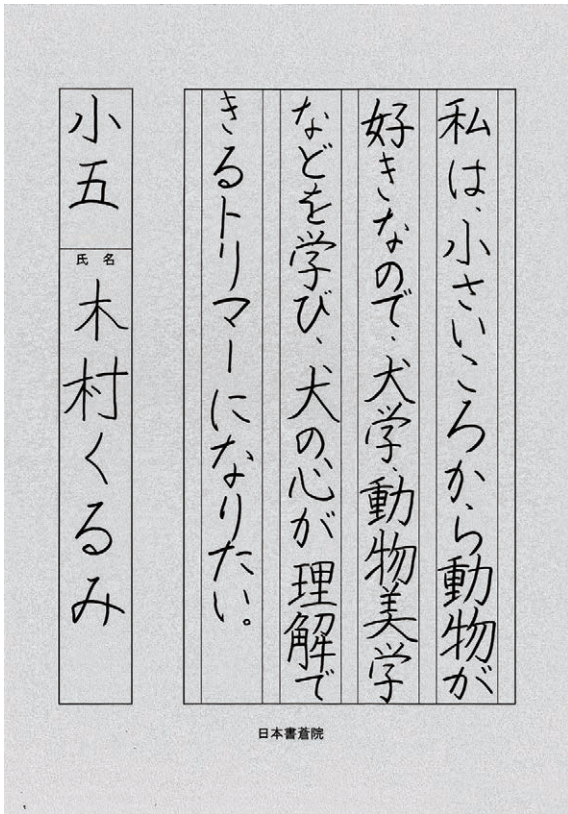 私は、小さいころから動物が
好きなので、犬学、動物美学
などを学び、犬の心が理解で
きるトリマーになりたい。
小五
氏名
木村くるみ
日本書蒼院